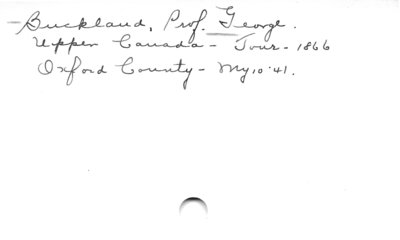 - Buckland, Prof. George.
Upper Canada - Tour - 1866
Oxford County - My 10 '41.